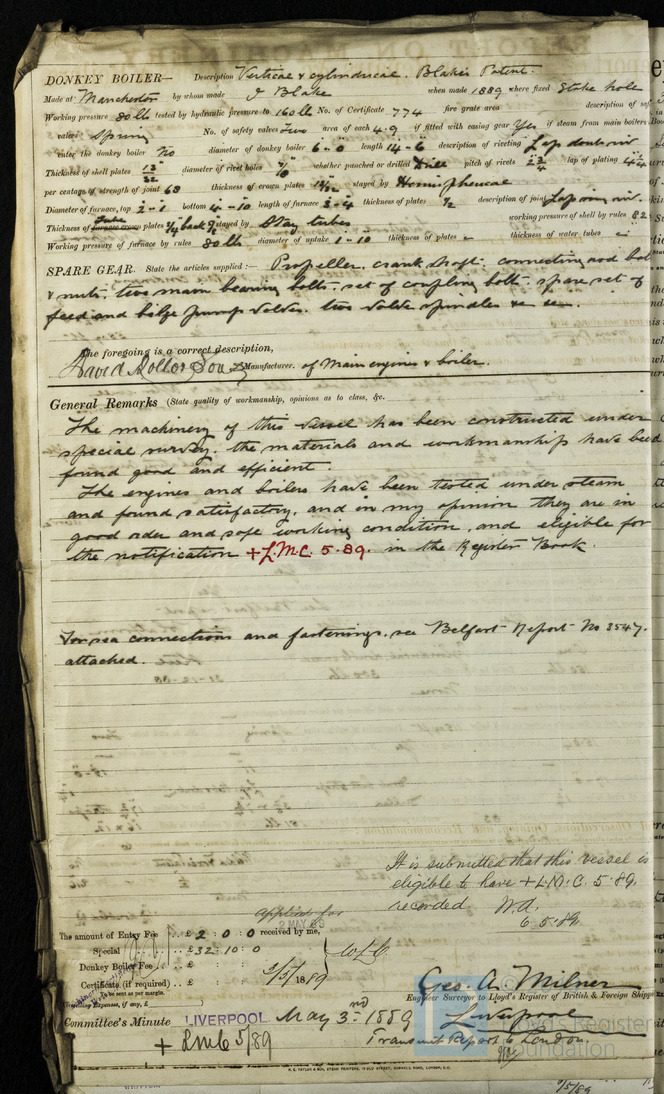 DONKEY BOILER— Description Vertical & cylindrical. Blake's Patent.
Made at Manchester by whom made J Blake when made 1889 where fixed Stoke hole
Working pressure 80 lb tested by hydraulic pressure to 160 lb No. of Certificate 774 fire grate area description of saf
valves Spring No. of safety valves Two area of each 4·9 if fitted with easing gear Yes if steam from main boilers
enter the donkey boiler No diameter of donkey boiler 6-0 length 14-6 description of riveting Lap double riv
Thickness of shell plates 13/32 diameter of rivet holes whether punched or drilled Drill pitch of rivets 2 3/4 lap of plating 4 1/4
per centage of strength of joint 68 thickness of crown plates stayed by Hemispherical
Diameter of furnace, top 2-1 bottom 4-10 length of furnace 3-4 thickness of plates 1/2 description of joint Lap sing riv.
Thickness of furnace crown plates Tube 3/4 back stayed by Stay tubes working pressure of shell by rules 82
Working pressure of furnace by rules 80 lb diameter of uptake 1-10 thickness of plates — thickness of water tubes —
SPARE GEAR. State the articles supplied:— Propeller, crank shaft, connecting rod bol
& nuts, two main bearing bolts, set of coupling bolts, spare set of
feed and bilge pump valves, two valve spindles &c &c.
The foregoing is a correct description,
David Rollo & Sons Manufacturer. of Main engines & boiler.
General Remarks (State quality of workmanship, opinions as to class, &c.
The machinery of this vessel has been constructed under
special survey. the materials and workmanship have been
found good and efficient
The engines and boilers have been tested under steam
and found satisfactory, and in my opinion they are in
good order and safe working condition, and eligible for
the notification +L.M.C. 5·89. in the Register Book.
For sea connections and fastenings, see Belfast Report No 3547.
attached.
It is submitted that this vessel is
eligible to have +L.M.C. 5·89.
recorded W.A.
6 5·89
Applied for
The amount of Entry Fee .. £ 2 : 0 : 0 received by me,
Special .. £ 32 : 10 : 0
Donkey Boiler Fee .. £ : :
Certificate (if required) .. £ : : 3/5/1889
To be sent as per margin.
Travelling Expenses, if any, £
Geo. A. Milner
Engineer Surveyor to Lloyd's Register of British & Foreign Shipp
Liverpool
Committee's Minute LIVERPOOL May 3rd 1889
Transmit Report to London
+ LMC 5/89
Lloyd's Register
Foundation